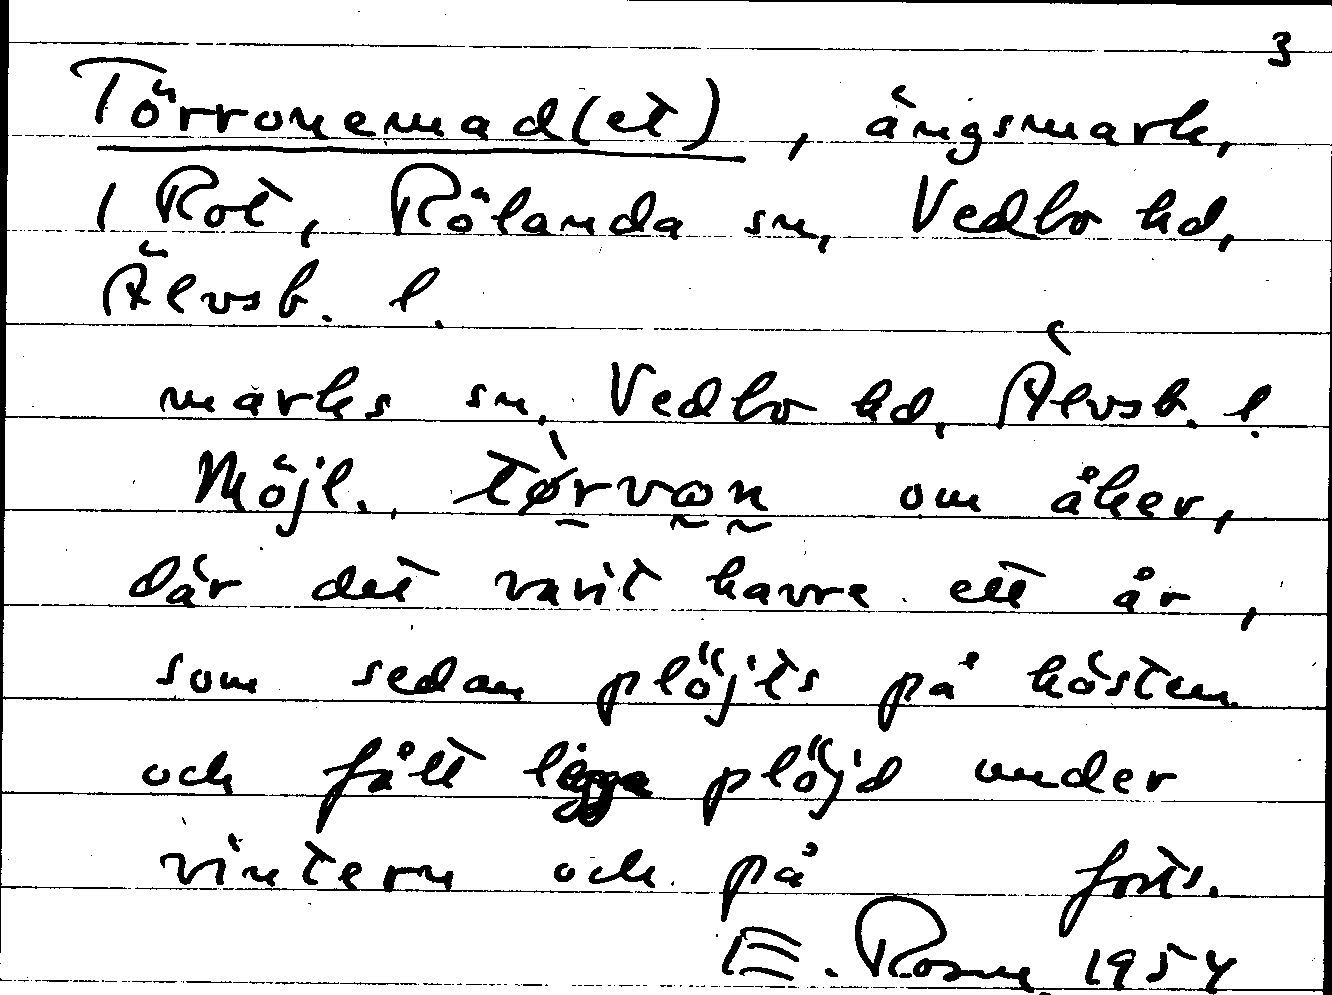 3
Törronemad(et), ängsmark,
1 Rot, Rölanda sn, Vedbo hd,
Älvsb. l.
marks sn, Vedbo hd, Älvsb. l.
Möjl., om åker,
där det varit havre ett år,
som sedan plöjts på hösten
och fått ligga plöjd under
vintern och på forts.
E. Rosm 1954